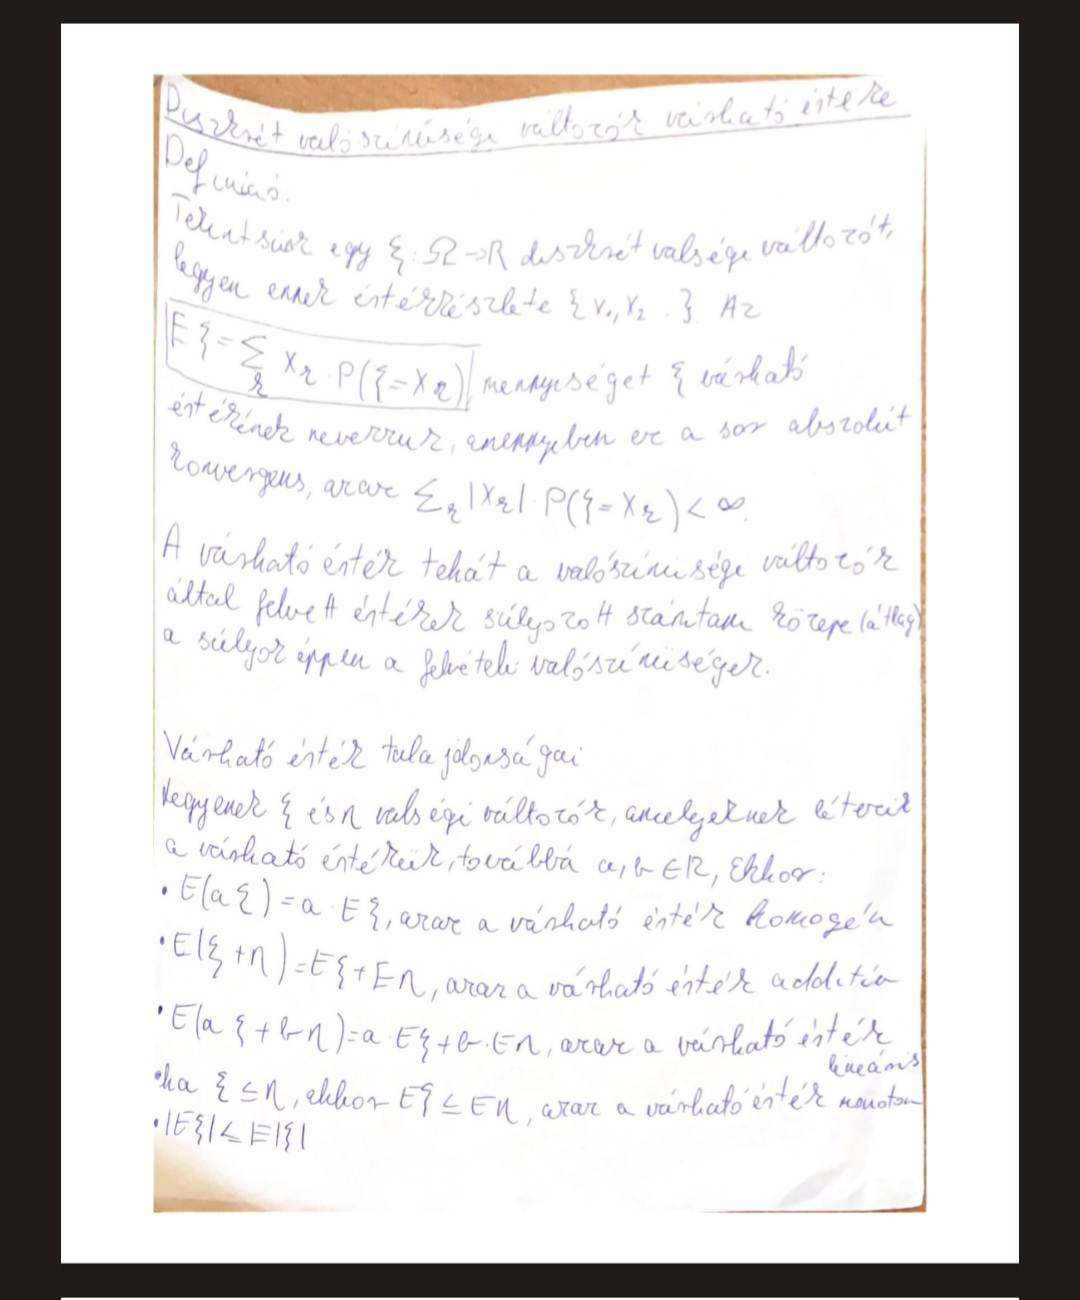 Diszkrét valószínűségi változók várható értéke
Definíció.
Tekintsünk egy ξ: Ω→R diszkrét valségi változót,
legyen ennek értékkészlete {x₁, x₂ . } Az
Eξ = Σₖ xₖ · P(ξ=xₖ) mennyiséget ξ várható
értékének nevezzük, amennyiben ez a sor abszolút
konvergens, azaz Σₖ |xₖ| · P(ξ=xₖ) < ∞.
A várható érték tehát a valószínűségi változók
által felvett értékek súlyozott számtani közepe (átlag)
a súlyok éppen a felvételi valószínűségek.
Várható érték tulajdonságai
Legyenek ξ és η valségi változók, amelyeknek létezik
a várható értékük, továbbá a, b ∈ R, Ekkor:
• E(aξ) = a · Eξ, azaz a várható érték homogén
• E(ξ + η) = Eξ + Eη, azaz a várható érték additív
• E(aξ + bη) = a Eξ + b · Eη, azaz a várható érték
lineáris
• ha ξ ≤ η, ekkor Eξ ≤ Eη, azaz a várható érték monoton
• |Eξ| ≤ E|ξ|